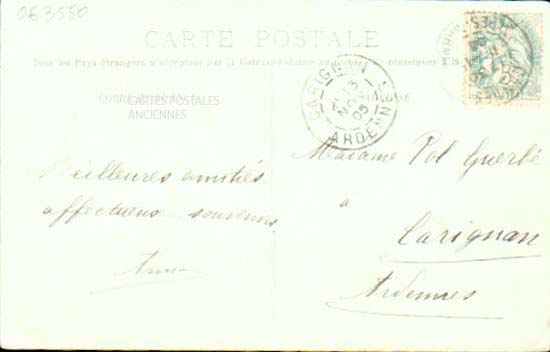 063580
CARTE POSTALE
Tous les Pays étrangers n'acceptent pas la Correspondance au se renseigner
CARTES POSTALES
ANCIENNES
CARIGNAN
13
NOV
05
ARDENNES
Meilleures amitiés
affectueux souvenirs
Anna
Madame Pol Guerbé
à
Carignan
Ardennes